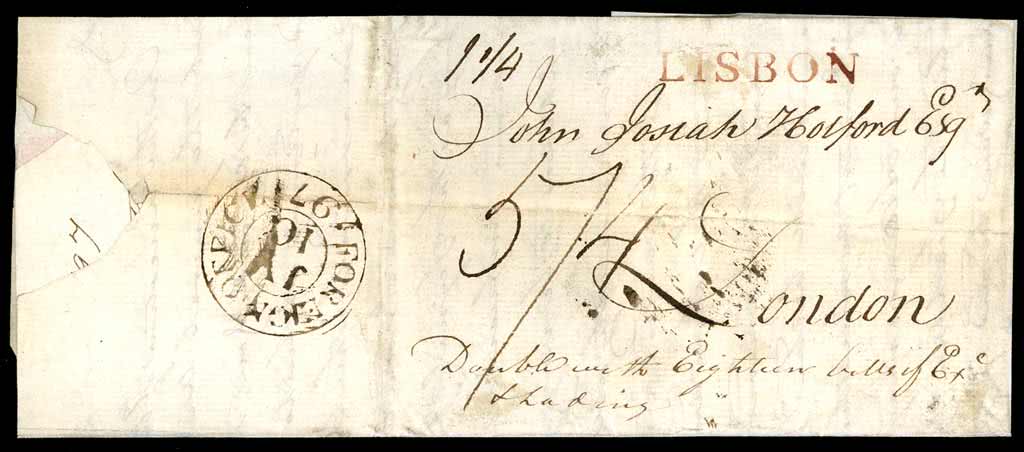 1 1/4
LISBON
John Josiah Holford Esqr
5/4
London
Double with Eighteen bills of Exe
& Lading
FOREIGN OFFICE
97